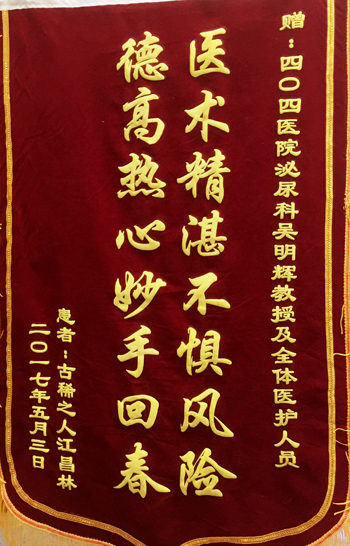 赠：四〇四医院泌尿科吴明辉教授及全体医护人员
医术精湛不惧风险
德高热心妙手回春
患者：古稀之人江昌林
二〇一七年五月三日